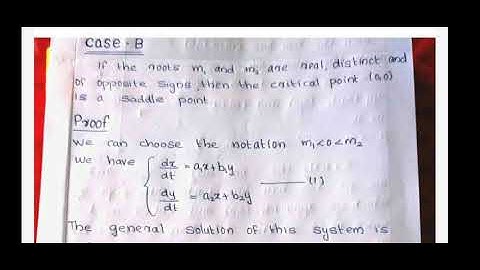 Case - B
If the roots m₁ and m₂ are real, distinct and
of opposite signs, then the critical point (0,0)
is a saddle point
Proof
We can choose the notation m₁<0<m₂
We have { dx/dt = a₁x+b₁y
——— (1)
dy/dt = a₂x+b₂y
The general solution of this system is